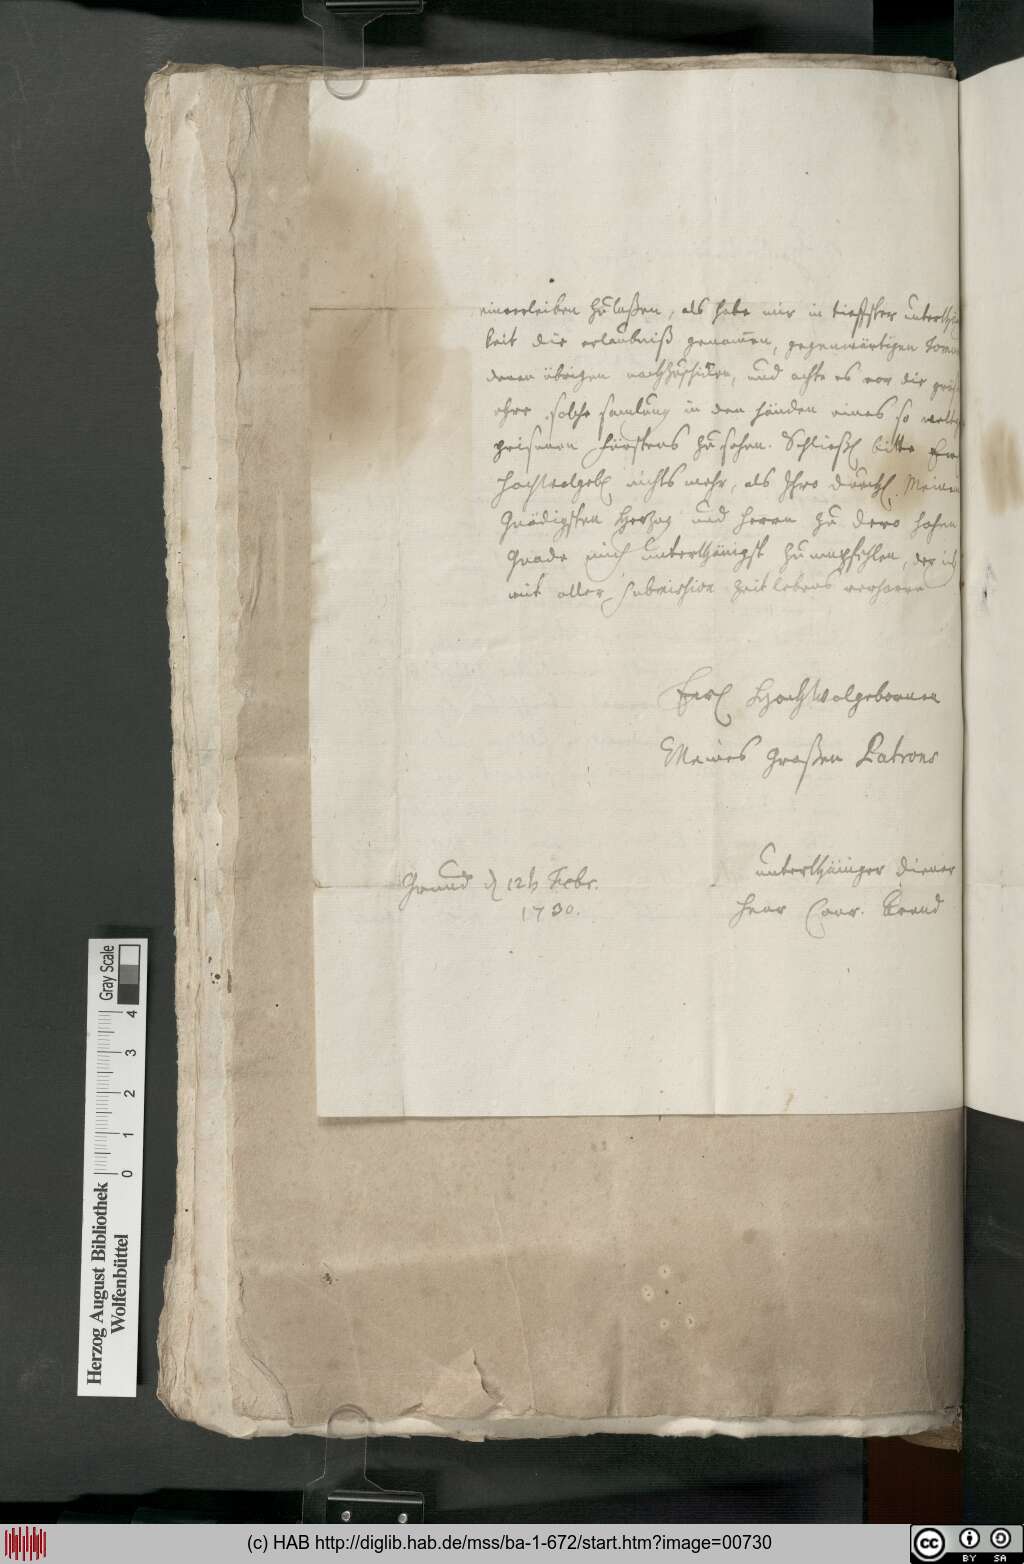 einverleiben zu laßen, als habe mir in tieffster
keit die erlaubniß genom̄en, gegenwärtigen
denen übrigen nachzuschicken, und achte es vor die
ehre solche samlung in den händen eines so
prisenen fürstens zu sehen. Schließl. bitte
Hochwolgeb. nichts mehr, als Ihro durchl. Meinem
Gnädigsten Herzog und Herrn zu dero hohen
Gnade mich unterthänigst zu empfehlen, der ich
mit aller submission zeit lebens verharre
Hochwolgebornen
Meines Großen Patrons
Grund d 12t Febr.
1730.
unterthäniger diener
Henr
Herzog August Bibliothek
Wolfenbüttel
0 1 2 3 4
Gray Scale
(c) HAB http://diglib.hab.de/mss/ba-1-672/start.htm?image=00730
cc BY SA